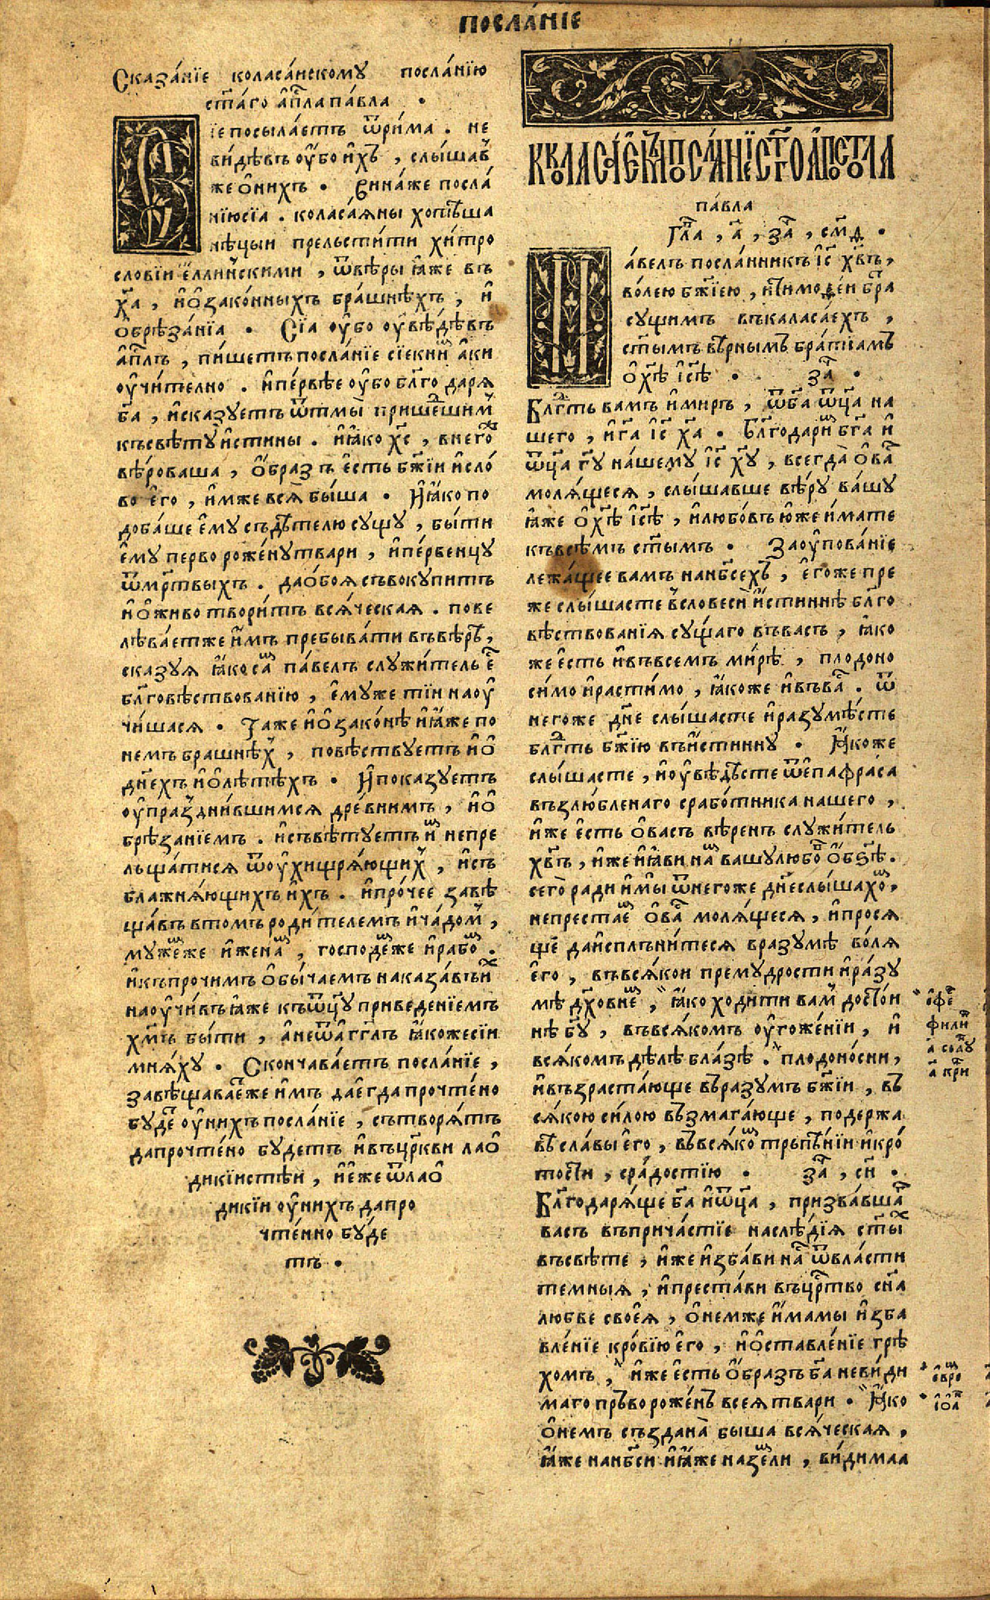 ПОСЛА́НІЕ
Сказа́нїе коласа́искому посла́нїю
ст҃а́го ап҃ла па́вла .
С їе посыла́етъ ѿри́ма . не
ви́дѣвъ оу҆́бо и҆́хъ , слы́шав
же ѻ҆ни́хъ . вина́же посла́
нїюсїа̀ . коласа́ѧны хотѣ́ша
нѣ́цыи прельсти́ти хи́тро
словїи є҆́ллиньскими , ѿвѣ́ры ꙗ҆́же въ
х҃а , и҆ѻ҆зако́нныхъ бра́шнѣхъ , и҆
ѻ҆брѣ́занїа . Сїа̀ оу҆́бо оу҆вѣ́дѣвъ
ап҃лъ , пи́шетъ посла́нїе сїе къни́м а҆́ки
оу҆чи́телно . и҆пе́рвѣе оу҆́бо бл҃го даря̀
б҃а , и҆сказуетъ ѿтмы̀ прише́дшим
късвѣ́ту и҆́стины . и҆ꙗ҆́ко х҃с , в него́же
вѣ́роваша , ѻ҆́бразъ є҆́сть бж҃їи и҆сло́
во є҆го̀ , и҆́мже вся̀ бы́ша . И҆ꙗ҆́ко по
доба́ше є҆му̀ съдѣ́телю су́щу , бы́ти
є҆му̀ перво роже́ну твари , и҆пе́рвенцу
ѿме́ртвыхъ . даѻ҆боя̀ съвокупи́тъ
и҆ѻ҆живо твори́тъ вся́ческая . пове
лѣва́етже и҆́мъ пребыва́ти въвѣ́рѣ ,
сказуя ꙗ҆́ко са́м па́велъ служи́тель є҆́сть
бл҃говѣствованїю , є҆му́же тїи наоу҆
чи́шася . Та́же и҆ѻ҆зако́нѣ и҆ꙗ҆́же по
немъ бра́шнѣх , повѣ́ствуетъ и҆ѻ҆
дн҃ехъ и҆ѻ҆лѣ́тѣхъ . И҆показуетъ
оу҆пра́здни́вшимся дре́внимъ , и҆ѻ҆
брѣ́занїемъ . и҆съвѣ́туетъ и҆́м непре
льща́тися ѿоу҆хищря́ющих , и҆съ
блажня́ющихъ и҆́хъ . и҆про́чее завѣ
ща́въ втомъ роди́телемъ и҆ча́дом ,
мужеже и҆жена́м , господе́же и҆рабо́м .
и҆къпро́чимъ ѻ҆бы́чаемъ наказа́въ и҆́х
наоу҆чи́въ ꙗ҆́же къѿц҃у приведе́нїемъ
х҃мъ бы́ти , а҆неѿа҆́гг҃лъ ꙗ҆́коже сїи
мня́ху . Сконча́ваетъ посла́нїе ,
завѣщава́еже и҆́мъ дає҆гда̀ прочте́но
бу́де оу҆ни́хъ посла́нїе , сътворя́тъ
дапрочте́но бу́детъ и҆въцр҃кви лаѻ҆
дикїистѣ́и , и҆є҆́же ѿлаѻ҆
дикїи оу҆ни́хъ дапро
чте́нно бу́де
тъ .
па́вла
Гл҃а , а҃ , за҃ , сн҃д .
П а́велъ посла́нникъ і҆с҃ х҃въ ,
во́лею бж҃їею , и҆тимоѳеи бра
сущимъ въкаласа́ехъ ,
ст҃ымъ вѣ́рнымъ бра́тїамъ
ѻ҆х҃ѣ і҆с҃ѣ . за҃ .
Бл҃гть ва́мъ и҆ми́ръ , ѿб҃а ѿц҃а на
шего , и҆г҃а і҆с҃ х҃а . Бл҃годари́м бг҃а и҆
ѿц҃а г҃у на́шему і҆с҃ х҃у , всегда̀ ѻ҆ва́с
моля́щеся , слы́шавше вѣ́ру ва́шу
ꙗ҆́же ѻ҆х҃ѣ і҆с҃ѣ , и҆любо́въ ю҆́же и҆́мате
къвсѣ́мъ ст҃ымъ . Заоу҆пова́нїе
лежа́щее ва́мъ нанб҃сехъ , є҆го́же пре
же слы́шасте въсловеси̇ и҆́стиннѣ бл҃го
вѣствова́нїя су́щаго въва́съ , ꙗ҆́ко
же є҆́сть и҆въвсемъ ми́рѣ , плодоно
си́мо и҆расти́мо , ꙗ҆́коже и҆въва́с . ѿ
него́же дн҃е слы́шасте и҆разумѣ́сте
бл҃гть бж҃їю въи҆́стинну . Ꙗ҆́коже
слы́шасте , и҆оу҆вѣ́дѣсте ѿє҆пафра́са
възлю́бленаго срабо́тника на́шего ,
и҆́же є҆́сть ѻ҆ва́съ вѣ́ренъ служи́тель
хв҃ъ , и҆́же и҆ꙗ҆ви на́м ва́шу любо́в ѻ҆́б дс҃ѣ .
сего̀ ради и҆мы̀ ѿнего́же дн҃е слы́шахом ,
непреста́ем ѻ҆ва́с моля́щеся , и҆прося
ще даи҆спо́лънитеся вразумѣ во́ля
є҆го̀ , въвся́кои прему́дрости и҆ра́зу
мѣ дх҃о́внем , ꙗ҆́ко ходи́ти ва́м досто́и
нѣ бг҃у , въвся́комъ оу҆гоже́нїи , и҆
вся́комъ дѣ́лѣ бла́зѣ . плодоно́сни ,
и҆възраста́юще въра́зумъ бж҃їи , въ
ся́кою си́лою възмага́юще , подержа
вѣ сла́вы є҆го̀ , въвся́ком трьпѣ́нїи и҆кро́
тости , сра́достїю . за҃ , сн҃ .
Бл҃годаря́ще б҃а и҆ѿц҃а , призва́вшаг
ва́съ въприча́стїе наслѣ́дїя ст҃ых
въсвѣ́те , и҆́же и҆зба́ви на́с ѿвла́сти
темныя , и҆преста́ви въцр҃тво сн҃а
любве своея̀ , ѻ҆не́мже и҆́мамы и҆зба
вле́нїе кро́вїю є҆го̀ , и҆ѻ҆ставле́нїе грѣ
хомъ , и҆́же є҆́сть ѻ҆́бразъ б҃а неви́ди
маго пръворо́женъ всея̀ твари . Ꙗ҆́ко
ѻ҆не́мъ създа́на бы́ша вся́ческая ,
ꙗ҆́же нанб҃си и҆ꙗ҆́же наземли , ви́димаа